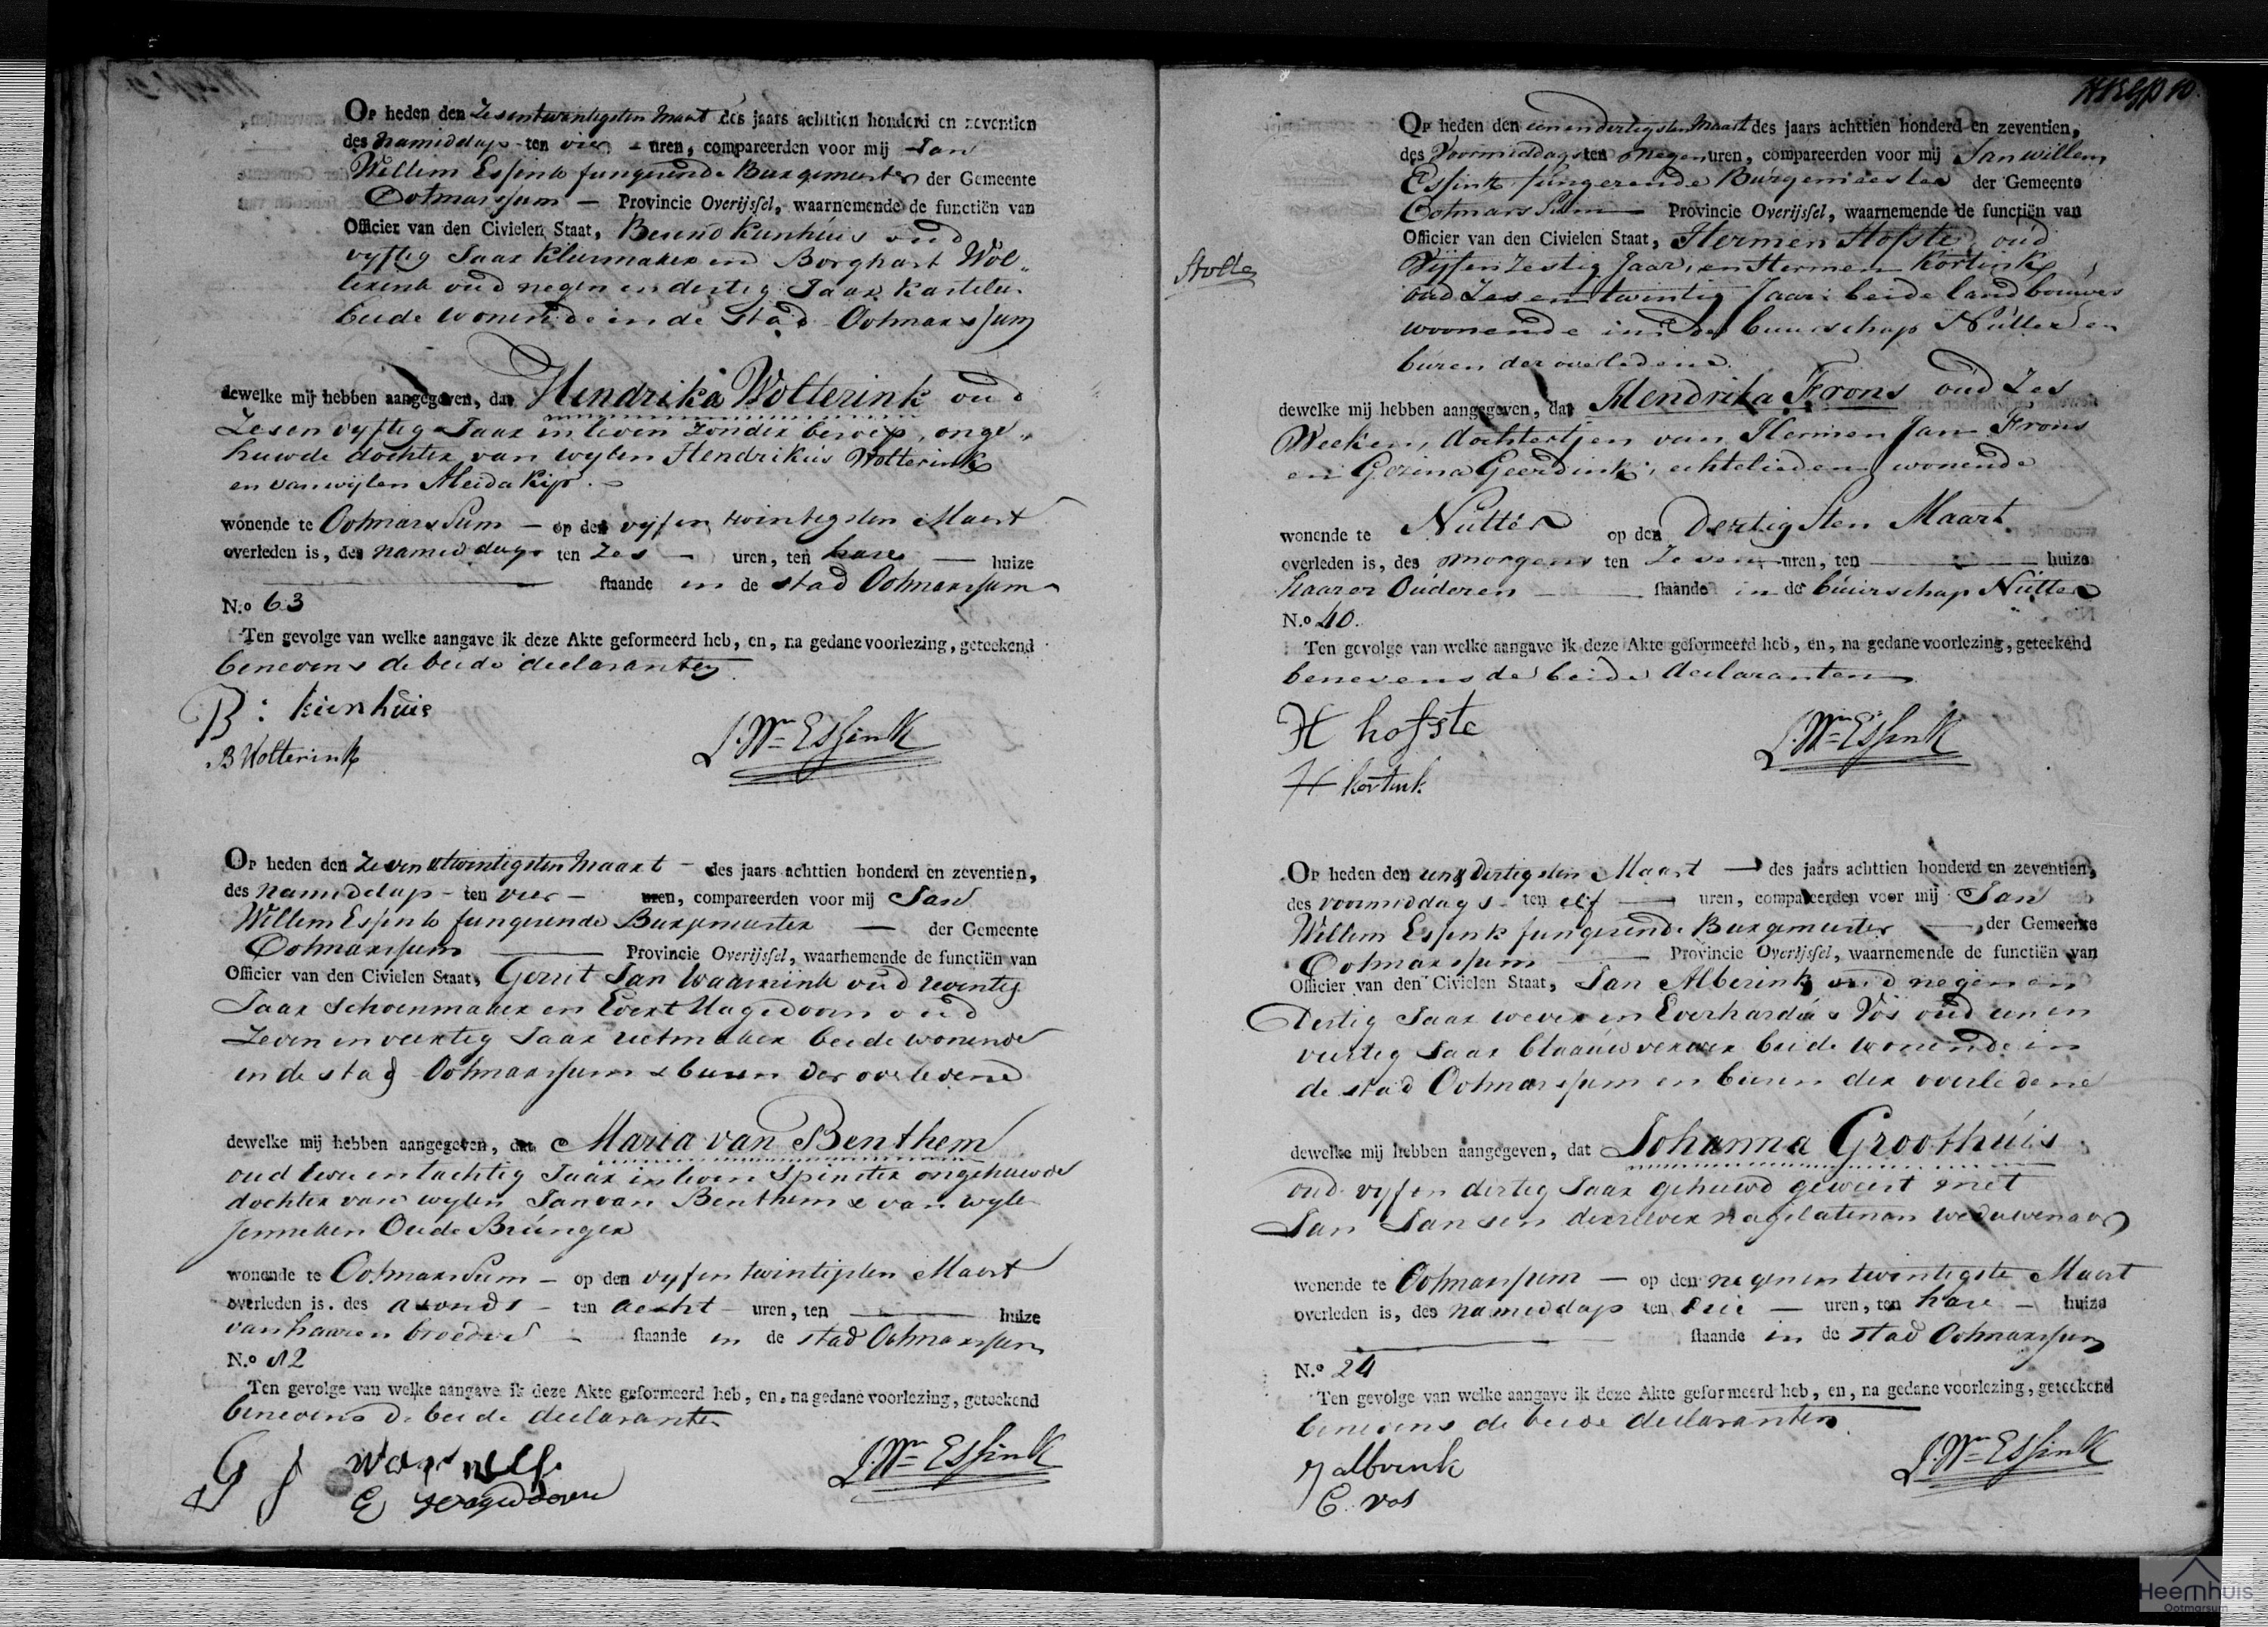 Op heden den Zesentwintigsten Maart des jaars achttien honderd en zeventien
des namiddags ten vier uren, compareerden voor mij Jan
Willem Essink fungerende Burgemeester der Gemeente
Ootmarssum — Provincie Overijssel, waarnemende de functiën van
Officier van den Civielen Staat, Berend Kienhuis oud
vyftig Jaar Kleermaker en Borghart Wol-
terink oud negen en dertig Jaar Kastelein
beide wonende in de Stad Ootmarssum
dewelke mij hebben aangegeven, dat Hendrika Wolterink oud
Zesenvyftig Jaar in leven zonder beroep, onge-
huwde dochter van wylen Hendrikus Wolterink
en van wijlen Aleida Kip.
wonende te Ootmarssum — op den vyfentwintigsten Maart
overleden is, des namiddags ten Zes — uren, ten hare — huize
staande in de stad Ootmarssum
N.o 63
Ten gevolge van welke aangave ik deze Akte geformeerd heb, en, na gedane voorlezing, geteekend
benevens de beide declaranten
B: kienhuis
J. Wm Essink
B Wolterink
Op heden den Zevenentwintigsten Maart — des jaars achttien honderd en zeventien,
des namiddags — ten vier — uren, compareerden voor mij Jan
Willem Essink fungerende Burgemeester — der Gemeente
Ootmarssum — Provincie Overijssel, waarnemende de functiën van
Officier van den Civielen Staat, Gerrit Jan oud zeventig
Jaar Schoenmaker en Evert Hagedoorn oud
Zeven en veertig Jaar beide wonende
in de stad Ootmarssum & buren der overledene
dewelke mij hebben aangegeven, dat Maria van Benthem
oud twee en tachtig Jaar in leven Spinster ongehuwde
dochter van wylen Jan van Benthem & van wyle
Jenneken Oude
wonende te Ootmarssum — op den vyfentwintigsten Maart
overleden is, des avonds — ten acht — uren, ten — huize
van haaren broeder — staande in de stad Ootmarssum
N.o 12
Ten gevolge van welke aangave ik deze Akte geformeerd heb, en, na gedane voorlezing, geteekend
benevens de beide declaranten
G J
J. Wm Essink
E Hagedoorn
Op heden den eenendertigsten Maart des jaars achttien honderd en zeventien,
des Voormiddags ten negen uren, compareerden voor mij Jan willem
Essink fungerende Burgemeester der Gemeente
Ootmarssum — Provincie Overijssel, waarnemende de functiën van
Officier van den Civielen Staat, Hermen Hofste oud
Vijfenzestig Jaar, en Hermen Kortink
oud Zes en twintig Jaar beide landbouwer
woonende in de buurschap Nutter en
buren der overledene.
dewelke mij hebben aangegeven, dat Hendrika Frons oud Zes
Weeken, dochtertjen van Hermen Jan Frons
en Gezina Geerdink, echtelieden wonende
wonende te Nutter op den Dertigsten Maart
overleden is, des morgens ten Zeven uren, ten — huize
haarer Ouderen — staande in de buurschap Nutter
N.o 40.
Ten gevolge van welke aangave ik deze Akte geformeerd heb, en, na gedane voorlezing, geteekend
benevens de beide declaranten
H hofste
J. Wm Essink
H kortink
Op heden den eenendertigsten Maart — des jaars achttien honderd en zeventien,
des voormiddags — ten elf — uren, compareerden voor mij Jan
Willem Essink fungerende Burgemeester — der Gemeente
Ootmarssum — Provincie Overijssel, waarnemende de functiën van
Officier van den Civielen Staat, Jan Alberink oud negen en
Dertig Jaar wever en Everhardus Vos oud een en
veertig Jaar blaauwverwer beide wonende in
de stad Ootmarssum en buren der overledene
dewelke mij hebben aangegeven, dat Johanna Groothuis
oud vyf en dertig Jaar gehuwd geweest met
Jan Jansen derzelver nagelatenen weduwenaar
wonende te Ootmarssum — op den negenentwintigste Maart
overleden is, des namiddags ten drie — uren, ten hare — huize
staande in de stad Ootmarssum
N.o 24
Ten gevolge van welke aangave ik deze Akte geformeerd heb, en, na gedane voorlezing, geteekend
benevens de beide declaranten
J albrink
J. Wm Essink
E. vos
Heemhuis
Ootmarsum